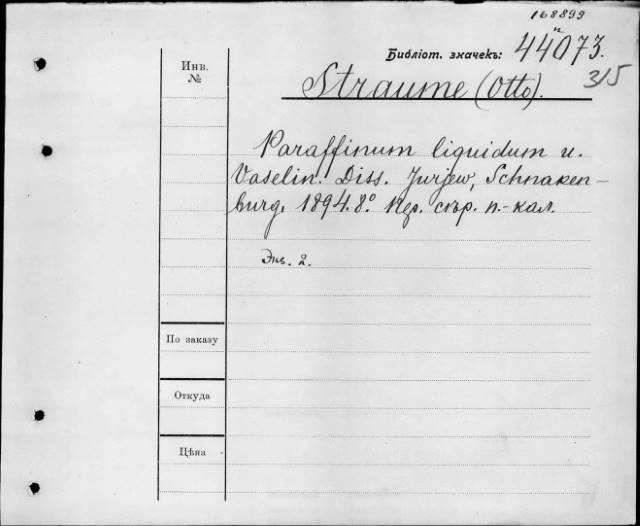 168899
Библіот. значекъ: 44073.
315
Инв.
№
Straume (Otto).
Paraffinum liquidum u.
Vaselin. Diss. Jurjew, Schnaken-
burg, 1894. 8º. Пер. съ р. п.-кал.
Экз. 2.
По заказу
Откуда
Цѣна